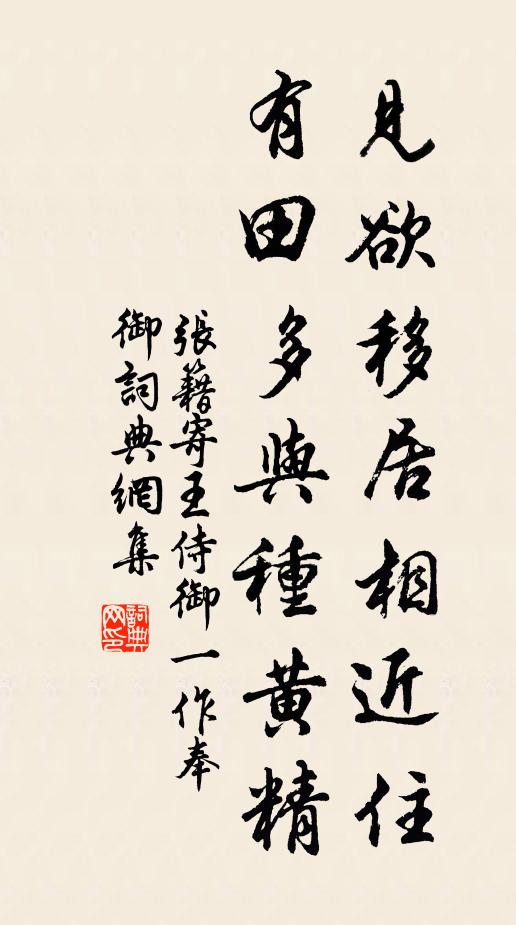 見欲移居相近住
有田多與種黃精
張籍寄王侍御一作奉
御詞典網集
詞典
网印